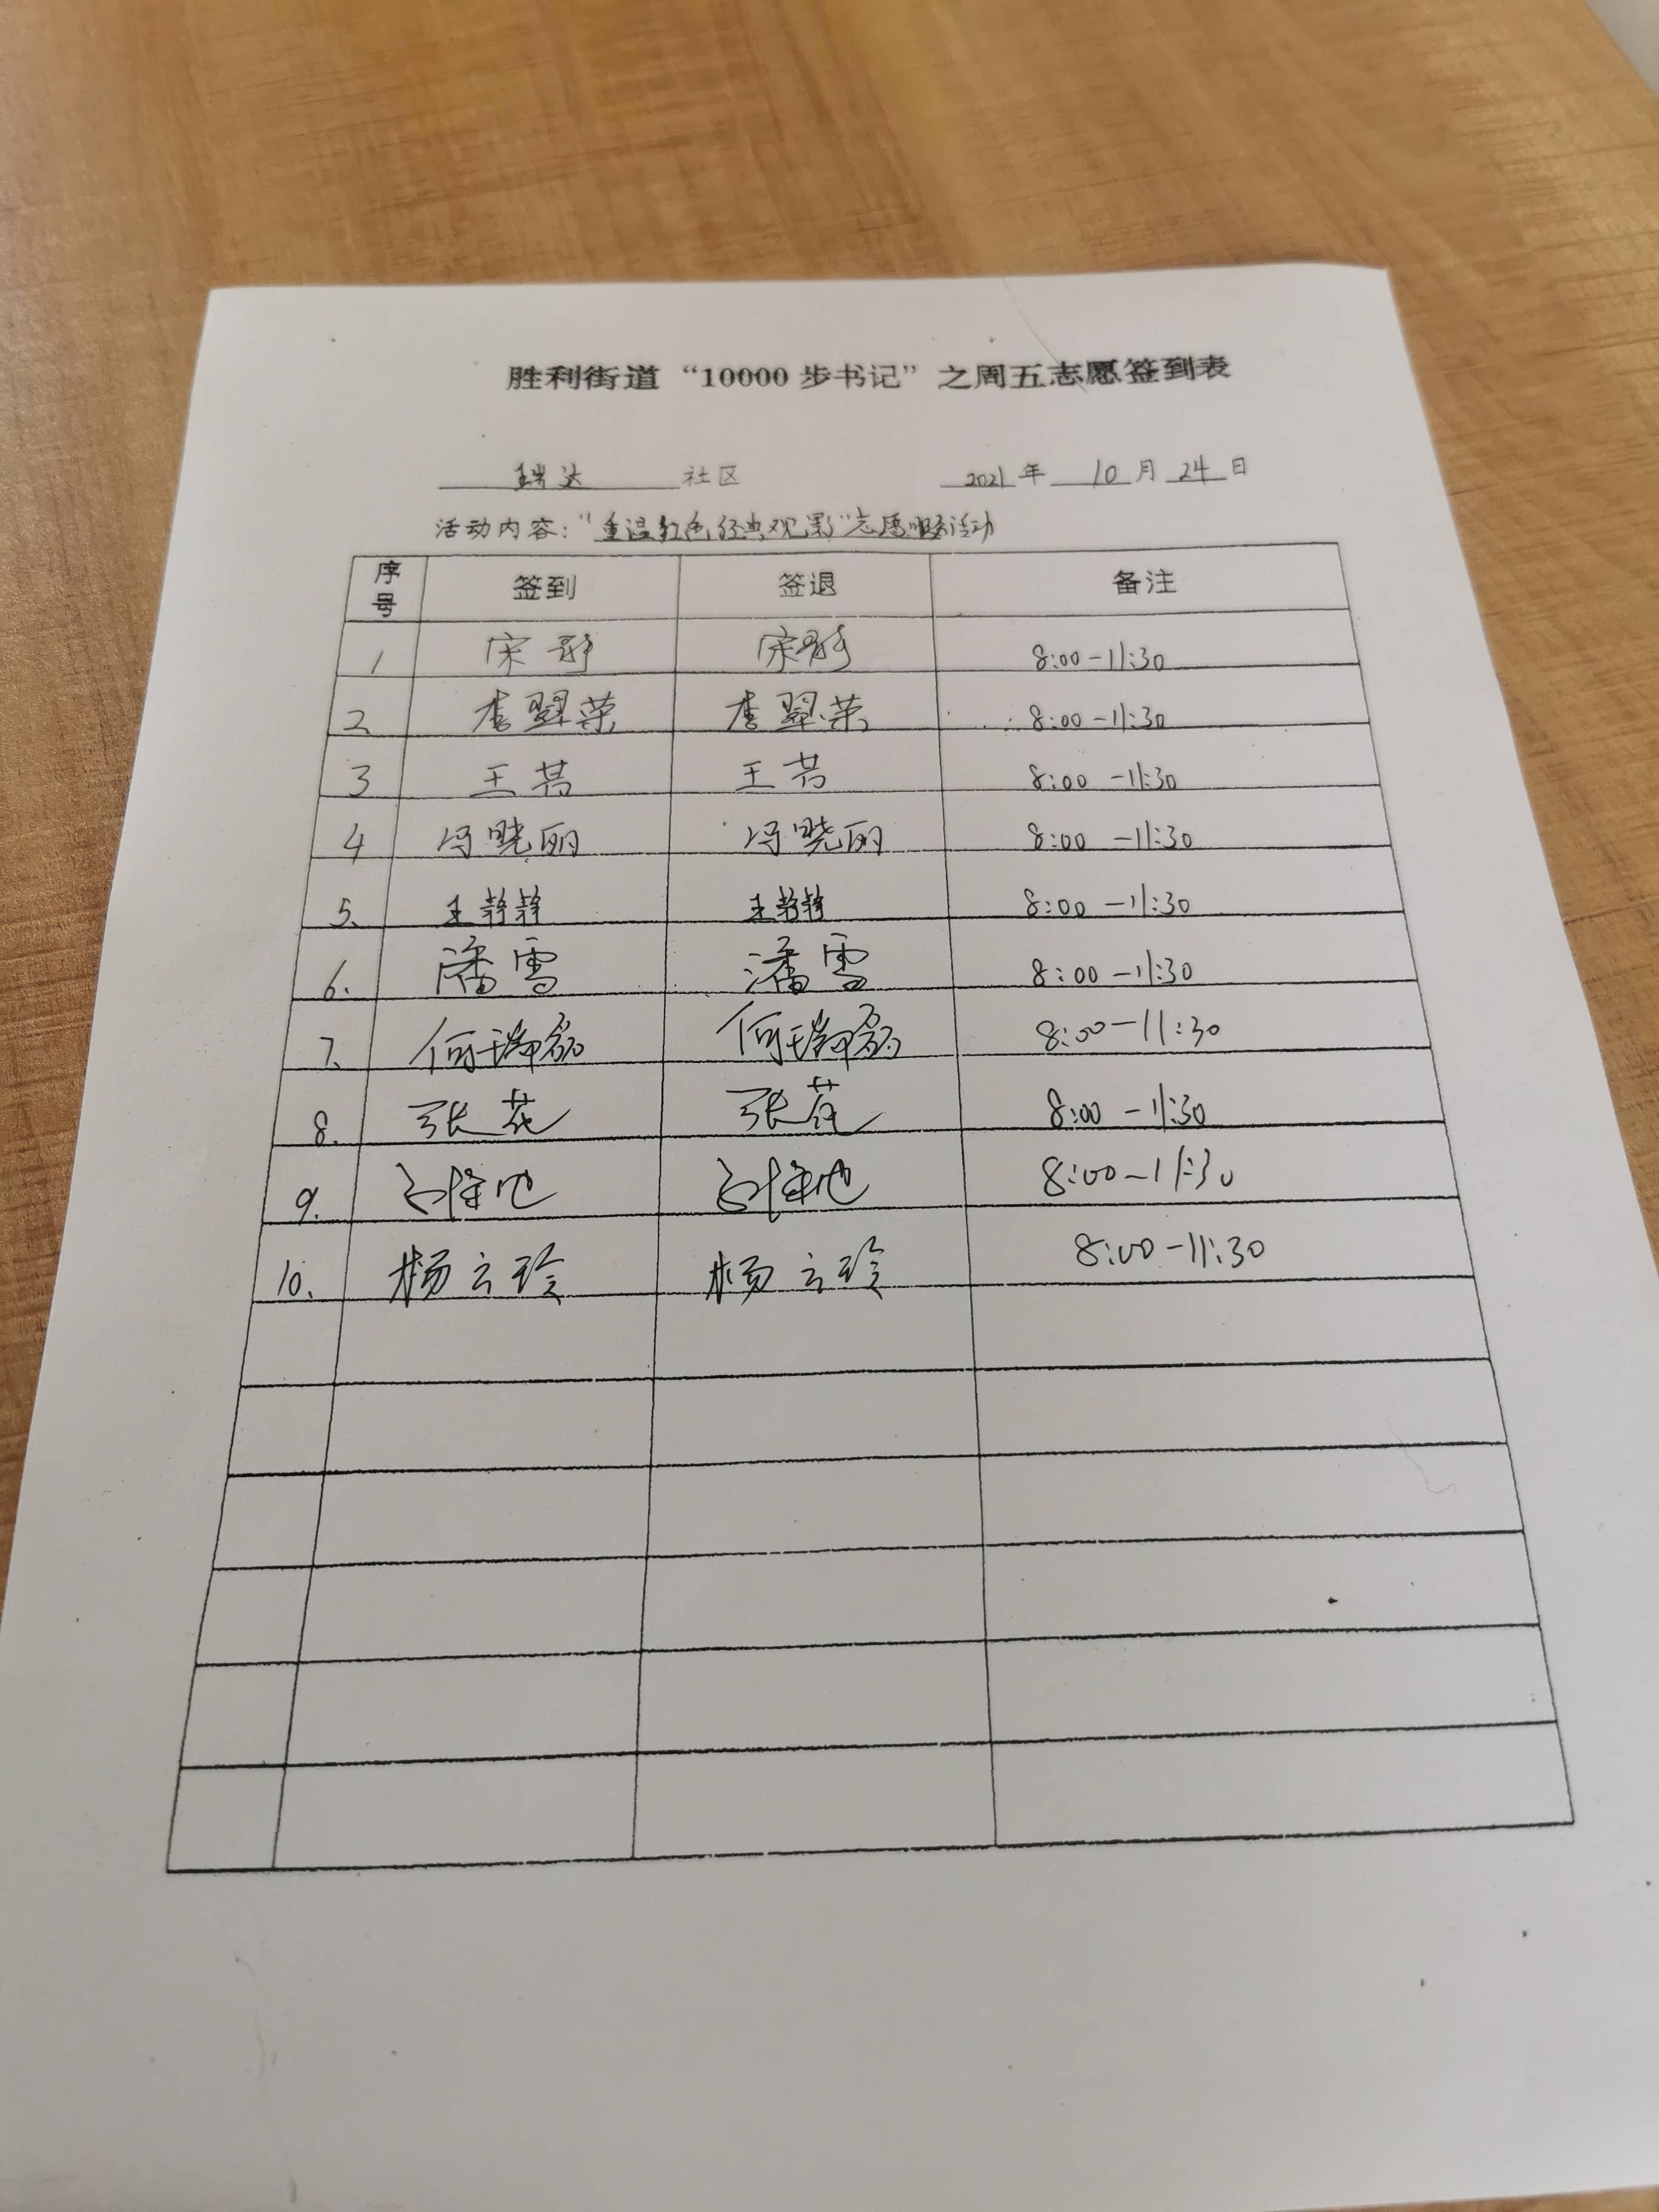 胜利街道“10000步书记”之周五志愿签到表
瑞达 社区 2021年 10月 24日
活动内容：“重温红色经典观影”志愿服务活动
序号 签到 签退 备注
1 宋彩 宋彩 8:00-11:30
2 李翠荣 李翠荣 8:00-11:30
3 王芳 王芳 8:00-11:30
4 冯晓丽 冯晓丽 8:00-11:30
5. 王静静 王静静 8:00-11:30
6. 潘雪 潘雪 8:00-11:30
7. 何瑞 何瑞 8:00-11:30
8. 张花 张花 8:00-11:30
9. 8:00-11:30
10. 杨云玲 杨云玲 8:00-11:30